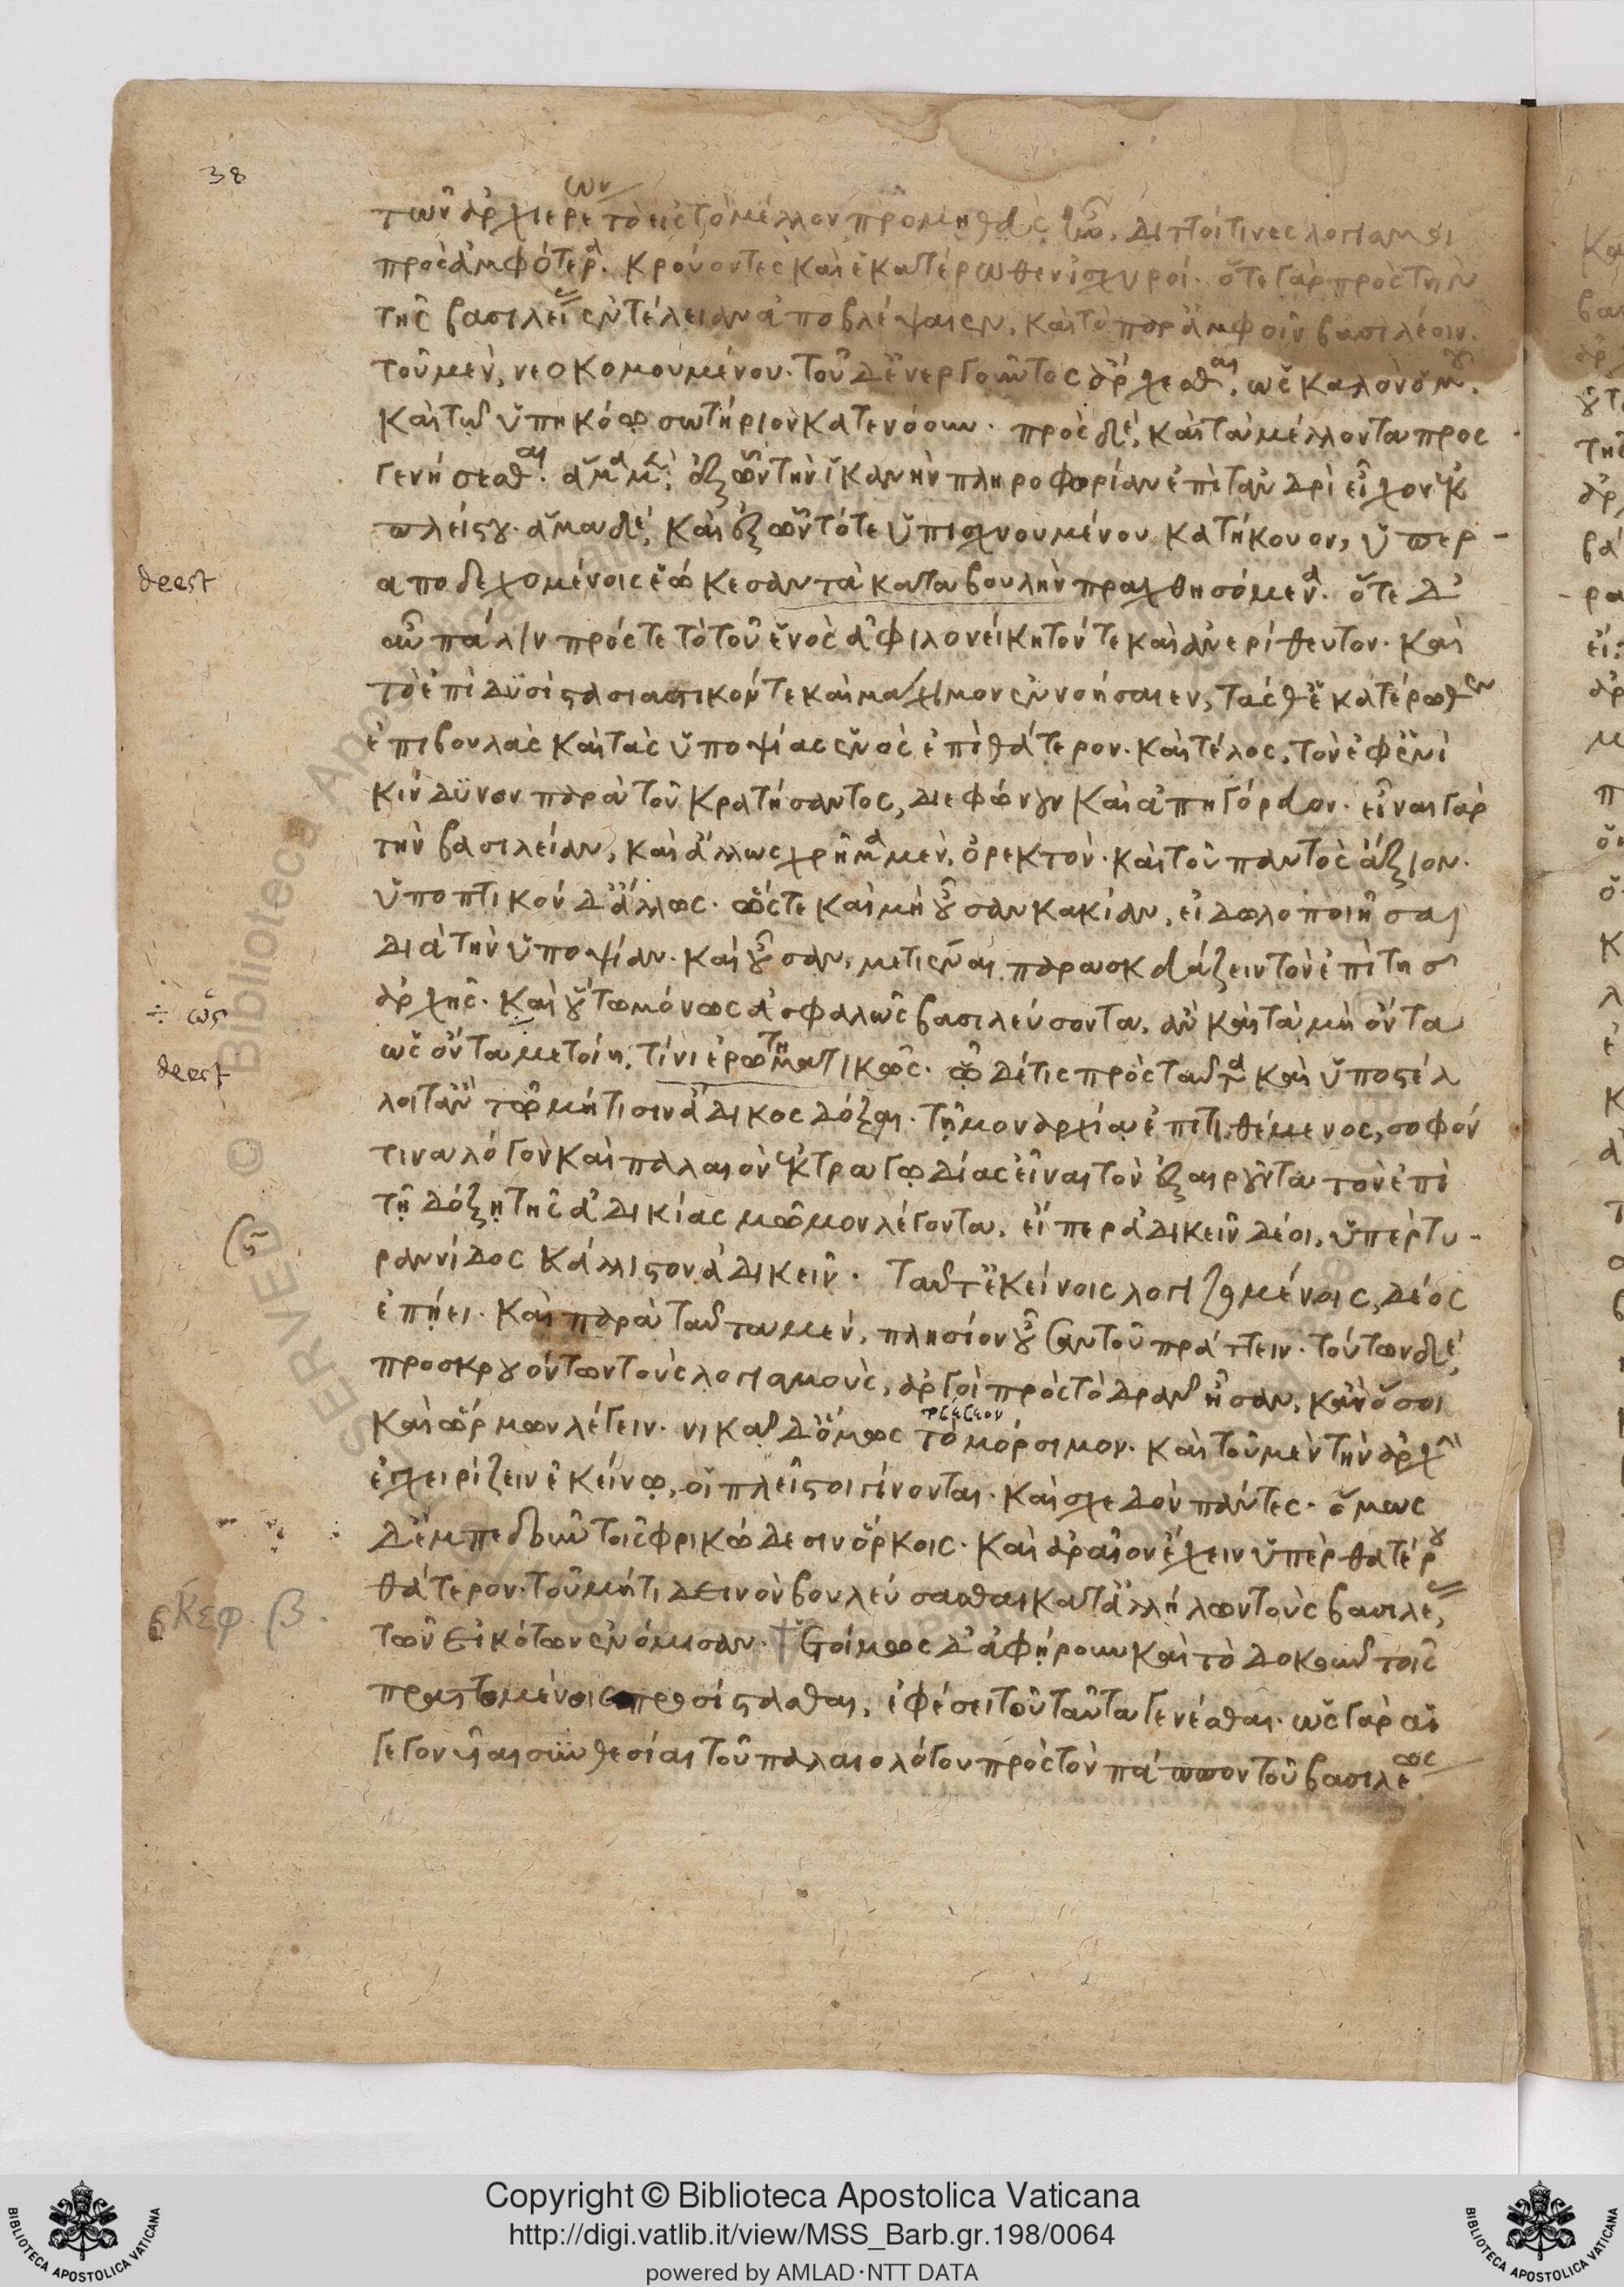 38
τῶν ἀρχιερέων τὸ εἰς τὸ μέλλον προμηθὲς ἦν. διττοί τινες λογισμοὶ
πρὸς ἀμφότερα κρούοντες καὶ ἑκατέρωθεν ἰσχυροί. ὅτε γὰρ πρὸς τὴν
τῆς βασιλείας ἐντέλειαν ἀποβλέψαιεν, καὶ τὸ παρ' ἀμφοῖν βασιλέοιν.
τοῦ μὲν, νεοκομουμένου. τοῦ δ' ἐνεργοῦντος ἄρχεσθαι, ὡς καλὸν ὁμοῦ.
καὶ τῷ ὑπηκόῳ σωτήριον κατενόουν. πρὸς δὲ, καὶ τὰ μέλλοντα προσ
γενήσεσθαι. ἅμα μὲν, ἐξ ὧν τὴν ἱκανὴν πληροφορίαν ἐπὶ τἀνδρὶ εἶχον ἐκ
πλείστου. ἅμα δὲ, καὶ ἐξ ὧν τότε ὑπισχνουμένου κατήκουον, ὑπερ-
deest
αποδεχομένοις ἐῴκεσαν τὰ κατὰ βουλὴν πραχθησόμενα. ὅτε δ'
αὖ πάλιν πρός τε τὸ τοῦ ἑνὸς ἀφιλονείκητόν τε καὶ ἀνερίθευτον. καὶ
τὸ ἐπὶ δυσὶ στασιαστικόν τε καὶ μάχιμον ἐννοήσαιεν, τάς θ' ἑκατέρωθεν
ἐπιβουλὰς καὶ τὰς ὑποψίας ἑνὸς ἐπὶ θάτερον. καὶ τέλος, τὸν ἐφ' ἑνὶ
κίνδυνον παρὰ τοῦ κρατήσαντος, διεφώνουν καὶ ἀπηγόρευον. εἶναι γὰρ
τὴν βασιλείαν, καὶ ἄλλως χρῆμα μὲν, ὀρεκτὸν. καὶ τοῦ παντὸς ἄξιον.
ὑποπτικὸν δ' ἄλλως. ὥστε καὶ μὴ οὖσαν κακίαν, εἰδωλοποιῆσαι
διὰ τὴν ὑποψίαν. καὶ οὖσαν, μετιέναι παρασκευάζειν τὸν ἐπὶ τῆς
÷ ὡς
ἀρχῆς. καὶ οὕτω μόνως ἀσφαλῶς βασιλεύσοντα, ἂν καὶ τὰ μὴ ὄντα
deest
ὡς ὄντα μετοίη. τίνι ἐρωτηματικῶς. ᾧ δέ τις πρὸς ταῦτα καὶ ὑποστέλ
λοιτ' ἂν τῷ μή τισιν ἄδικος δόξαι. τῇ μοναρχίᾳ ἐπιτιθέμενος, σοφόν
τινα λόγον καὶ παλαιὸν ἐκ τραγῳδίας εἶναι τὸν ἐξαιροῦντα τὸν ἐπὶ
τῇ δόξῃ τῆς ἀδικίας μῶμον λέγοντα, εἴπερ ἀδικεῖν δέοι, ὑπὲρ τυ-
ραννίδος κάλλιστον ἀδικεῖν. ταῦτ' ἐκείνοις λογιζομένοις, δέος
ἐπῄει. καὶ παρὰ ταῦτα μὲν, πλησίον οὖσαν τοῦ πράττειν. τούτων δὲ
προσκρουόντων τοὺς λογισμοὺς, ἀργοὶ πρὸς τὸ δρᾶν ἦσαν, κἂν ὅσοι
καὶ ὥρμων λέγειν. νικᾷ δ' ὅμως τὸ μόρσιμον. καὶ τοῦ μὲν τὴν ἀρχὴν
ἐγχειρίζειν ἐκείνῳ, οἱ πλεῖστοι γίνονται. καὶ σχεδὸν πάντες. ὅμως
δ' ἐμπεδοῦν τοῖς φρικώδεσιν ὅρκοις. καὶ ἀραῖον ἔχειν ὑπὲρ θατέρου
θάτερον. τοῦ μή τι δεινὸν βουλεύσασθαι κατ' ἀλλήλων τοὺς βασιλεῖς,
Κεφ. β.
τῶν εἰκότων ἐνόμισαν. † Ἑτοίμως δ' ἀφῄρουν καὶ τὸ δοκοῦν τοῖς
πραττομένοις προσίστασθαι, ἐφέσει τοῦ ταῦτα γενέσθαι. ὡς γὰρ αἵ
γεγονυῖαι συνθεσίαι τοῦ παλαιολόγου πρὸς τὸν πάππον τοῦ βασιλέως
Copyright © Biblioteca Apostolica Vaticana
http://digi.vatlib.it/view/MSS_Barb.gr.198/0064
powered by AMLAD·NTT DATA
BIBLIOTECA APOSTOLICA VATICANA
BIBLIOTECA APOSTOLICA VATICANA